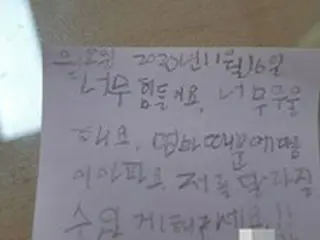 월요일 2020년 11월 16일
너무 힘들어요, 너무 우울
해요, 엄마 때문에 맘
이 아파요 저를 달라질
수 있게 해주세요!!